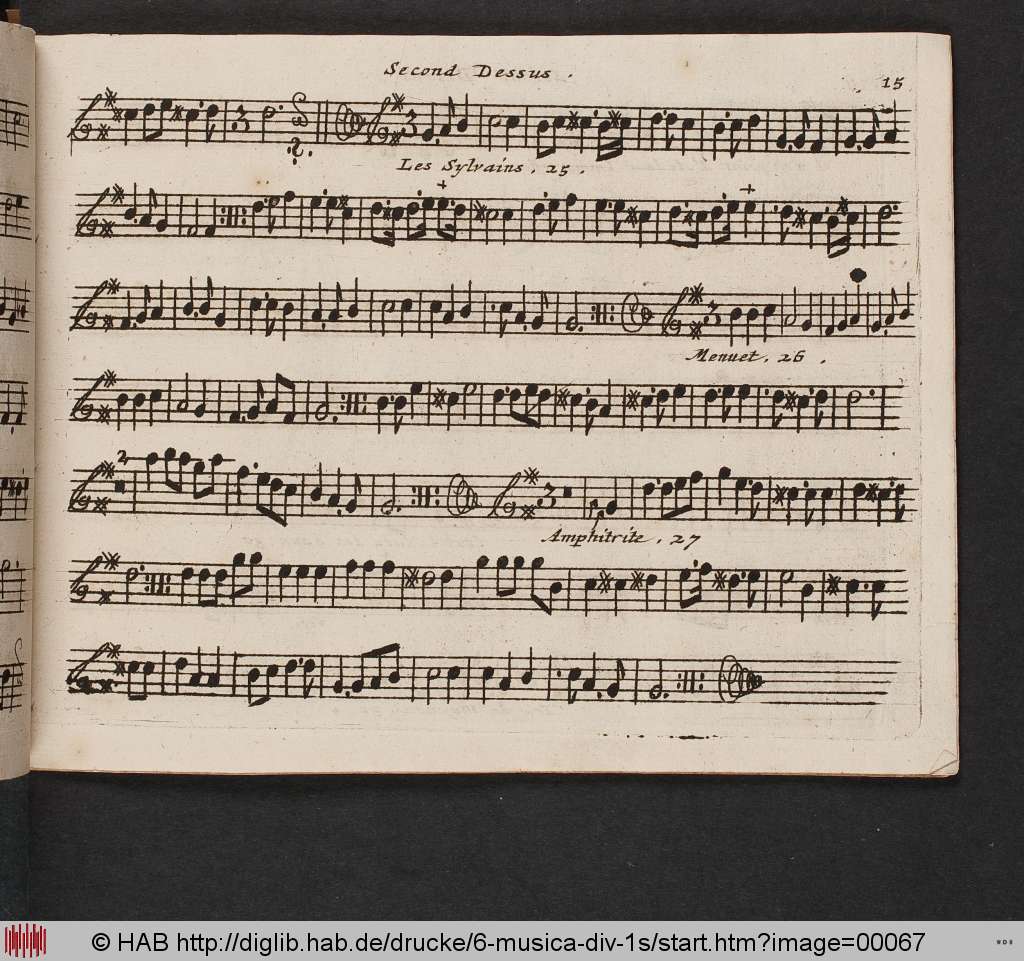 Second Dessus .
15
Les Sylvains . 25 .
Menuet . 26 .
Amphitrite . 27
© HAB http://diglib.hab.de/drucke/6-musica-div-1s/start.htm?image=00067